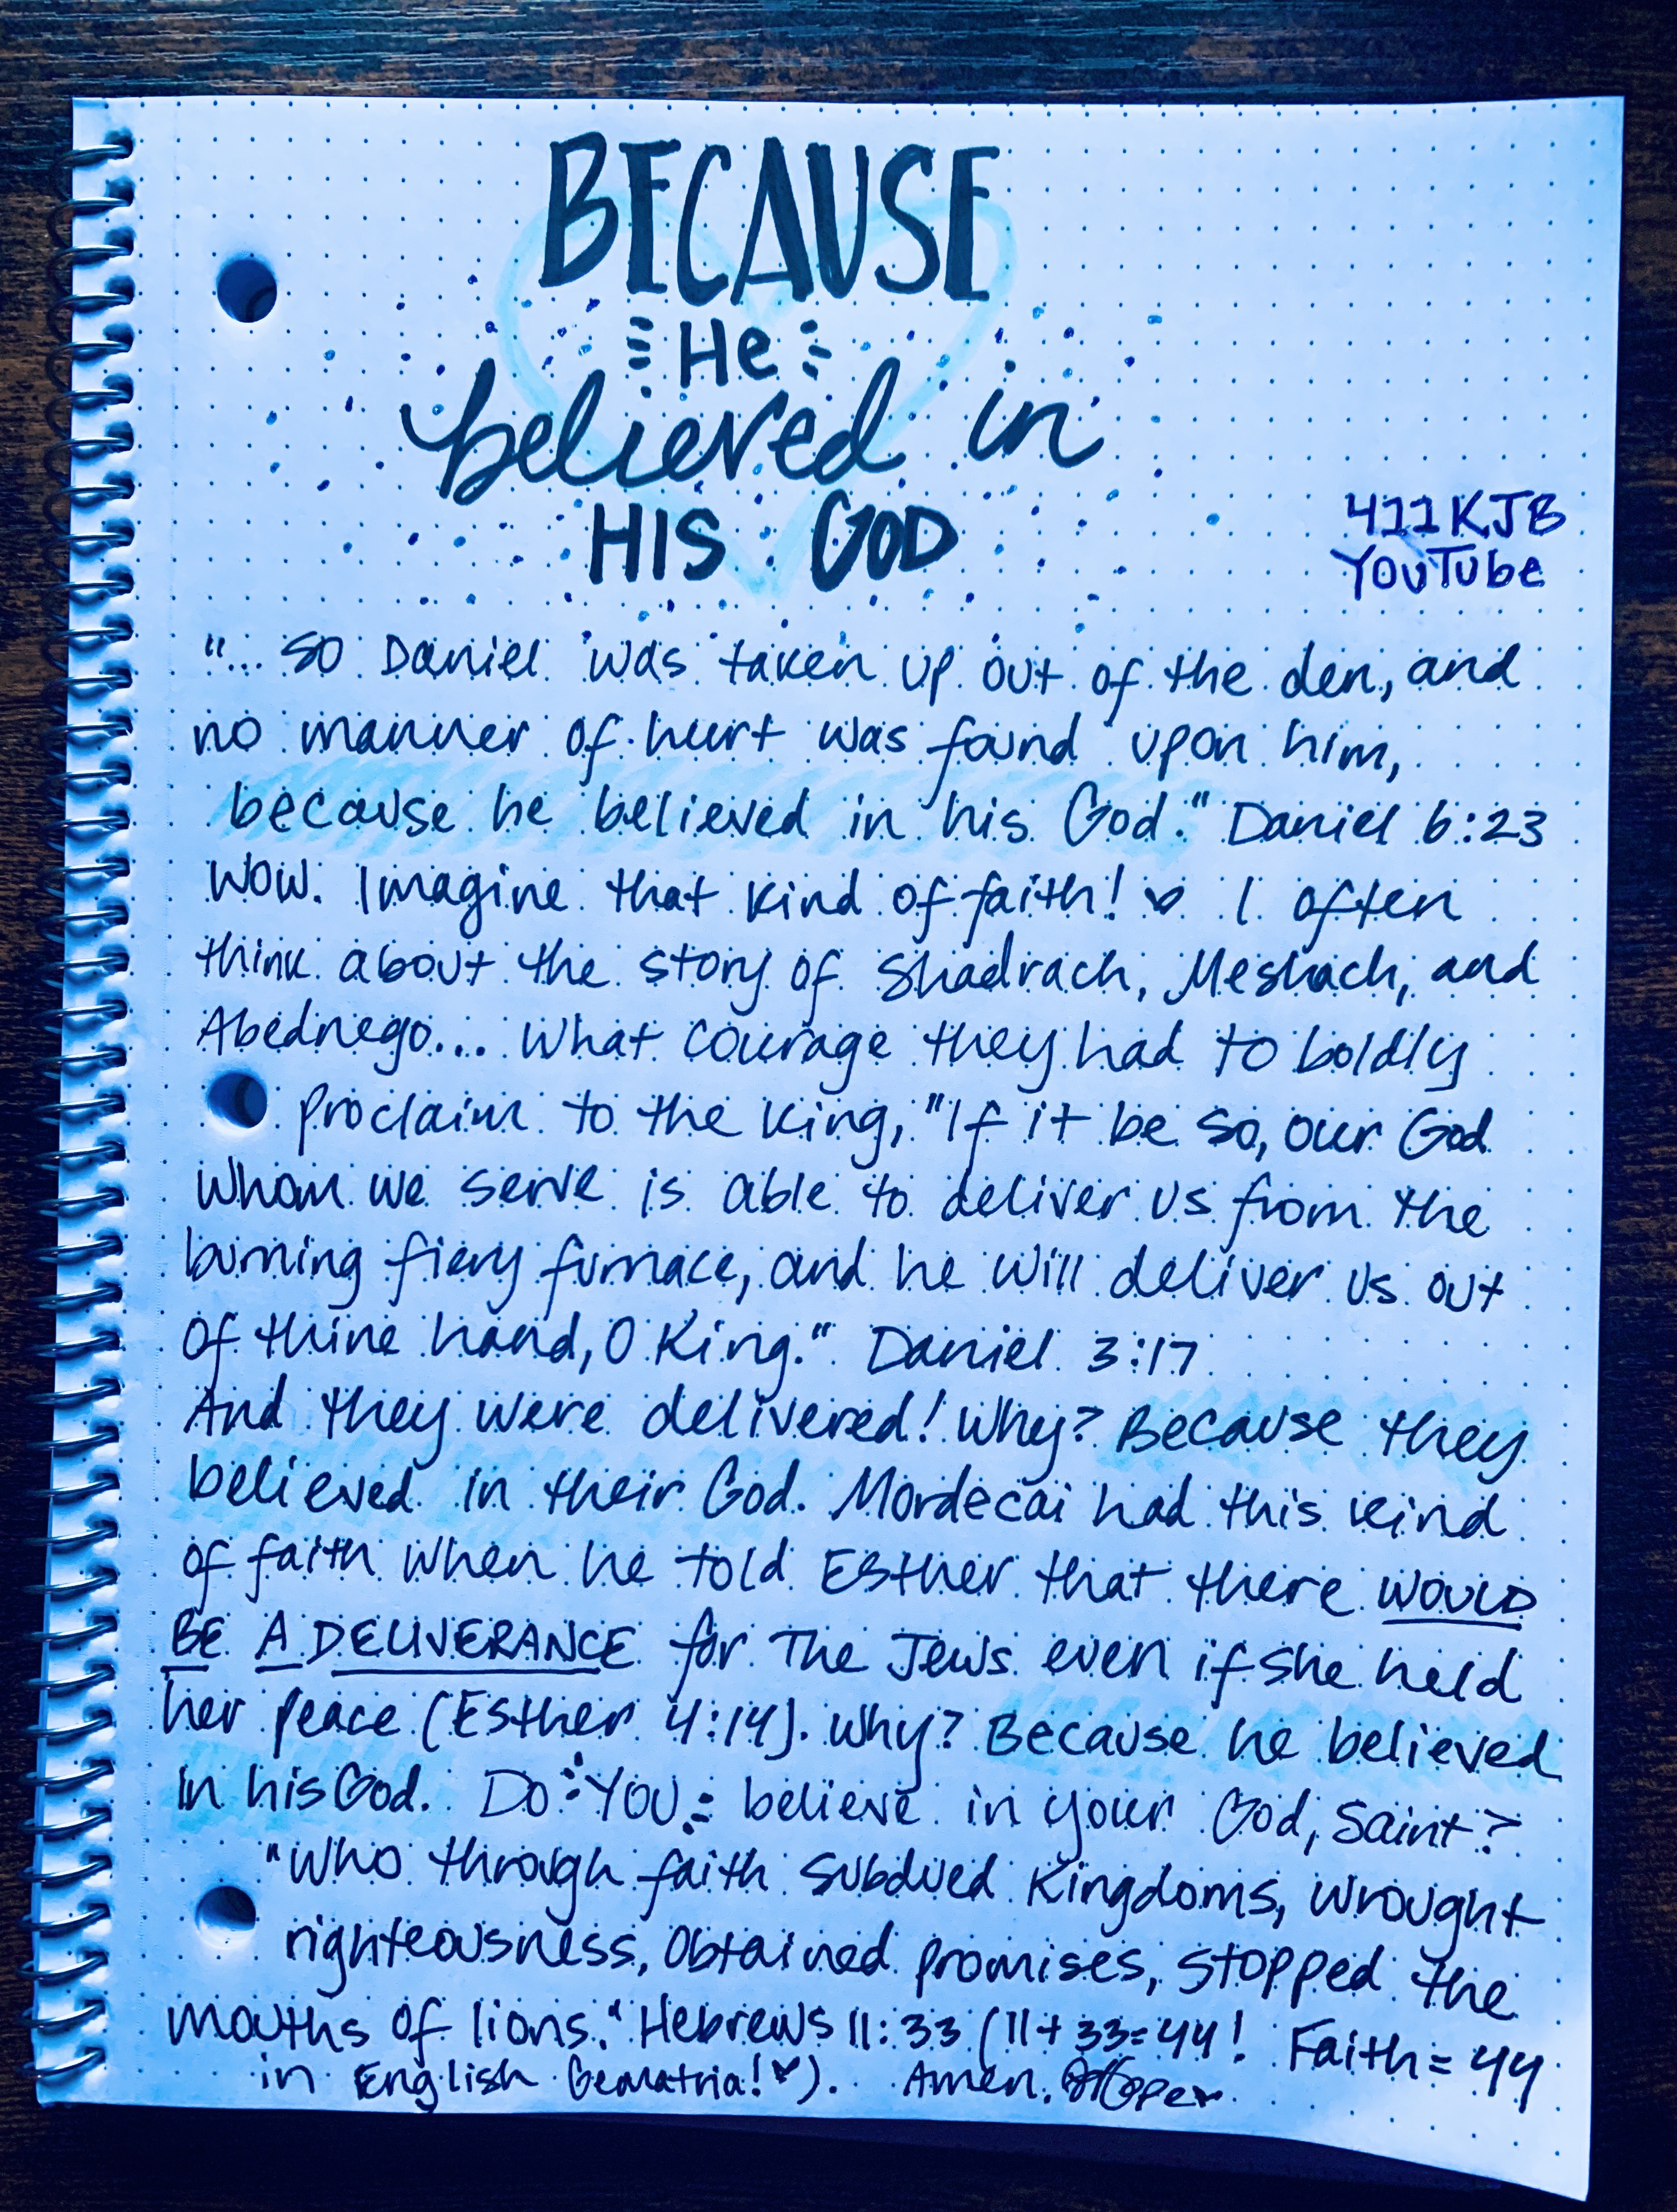 BECAUSE
He
believed in
HIS GOD
411KJB
YouTube
"... So Daniel was taken up out of the den, and
no manner of hurt was found upon him,
because he believed in his God." Daniel 6:23
Wow. Imagine that kind of faith! I often
think about the story of Shadrach, Meshach, and
Abednego... What courage they had to boldly
proclaim to the king, "If it be so, our God
whom we serve is able to deliver us from the
burning fiery furnace, and he will deliver us out
of thine hand, O King." Daniel 3:17
And they were delivered! Why? Because they
believed in their God. Mordecai had this kind
of faith when he told Esther that there WOULD
BE A DELIVERANCE for The Jews even if she held
her peace (Esther 4:14). Why? Because he believed
in his God. Do YOU believe in your God, Saint?
"Who through faith subdued Kingdoms, wrought
righteousness, obtained promises, stopped the
mouths of lions." Hebrews 11:33 (11+33=44! Faith=44
in English Gematria! ♥). Amen.